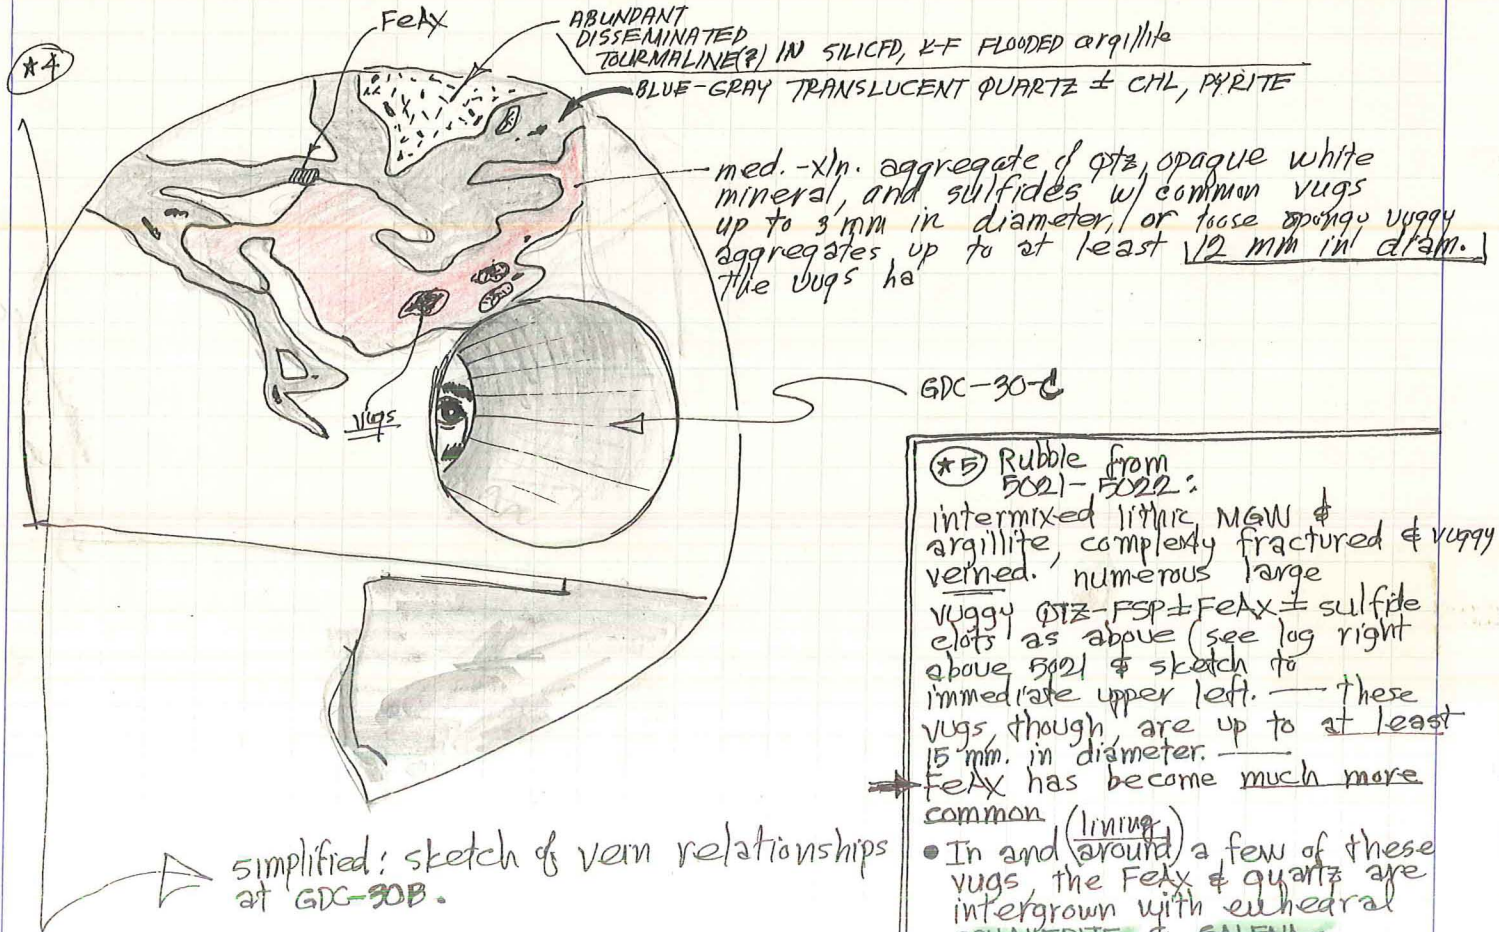 *4
FeAX
ABUNDANT
DISSEMINATED
TOURMALINE(?) IN SILICFD, K-F FLOODED argillite
BLUE-GRAY TRANSLUCENT QUARTZ ± CHL, PYRITE
med.-xln. aggregate of qtz, opaque white
mineral, and sulfides w/ common vugs
up to 3 mm in diameter, or loose spongy, vuggy
aggregates up to at least 12 mm in diam.
The vugs ha
vugs
GDC-30-C
*5 Rubble from
5021-5022:
intermixed lithic MGW &
argillite, complexly fractured & vuggy
veined. numerous large
vuggy QTZ-FSP±FeAX± sulfide
clots as above (see log right
above 5021 & sketch to
immediate upper left. — these
vugs, though, are up to at least
15 mm. in diameter. —
FeAX has become much more
common
(lining)
• In and (around) a few of these
vugs, the FeAX & quartz are
intergrown with euhedral
SPHALERITE & GALENA
simplified: sketch of vein relationships
at GDC-30B.